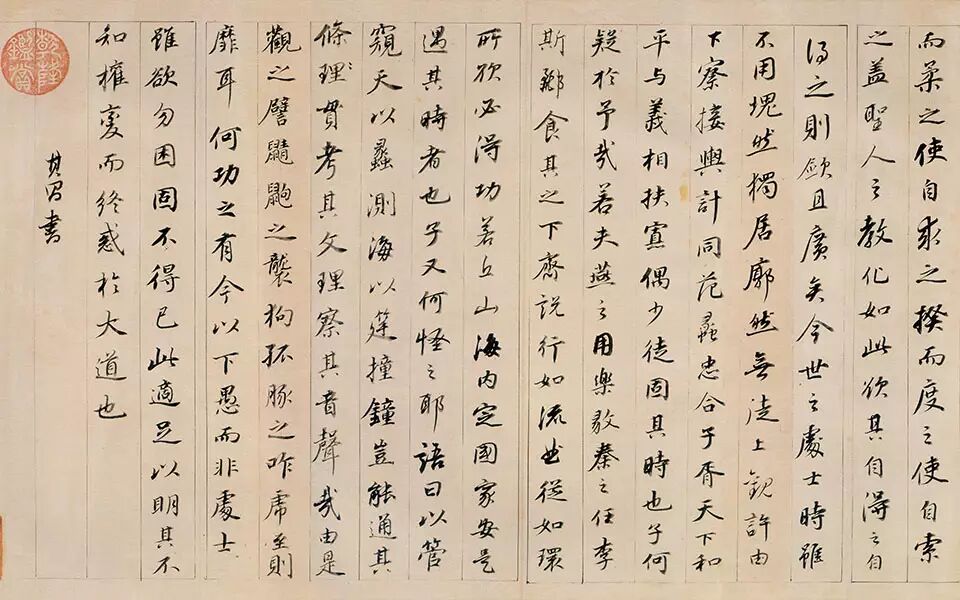 而柔之使自求之揆而度之使自索
之盖聖人之教化如此欲其自得之自
得之則敏且廣矣今世之處士時雖
不用塊然獨居廓然無徒上觀許由
下察接輿計同范蠡忠合子胥天下和
平与義相扶寡偶少徒固其時也子何
疑於予哉若夫燕之用樂毅秦之任李
斯酈食其之下齊說行如流曲從如環
所欲必得功若丘山海内定國家安是
遇其時者也子又何怪之耶語曰以管
窺天以蠡測海以筳撞鐘豈能通其
條理貫考其文理察其音聲哉由是
觀之譬鼱鼩之襲狗孤豚之咋虎至則
靡耳何功之有今以下愚而非處士
雖欲勿困固不得已此適足以明其不
知權變而終惑於大道也
其昌書
乾隆鑑賞